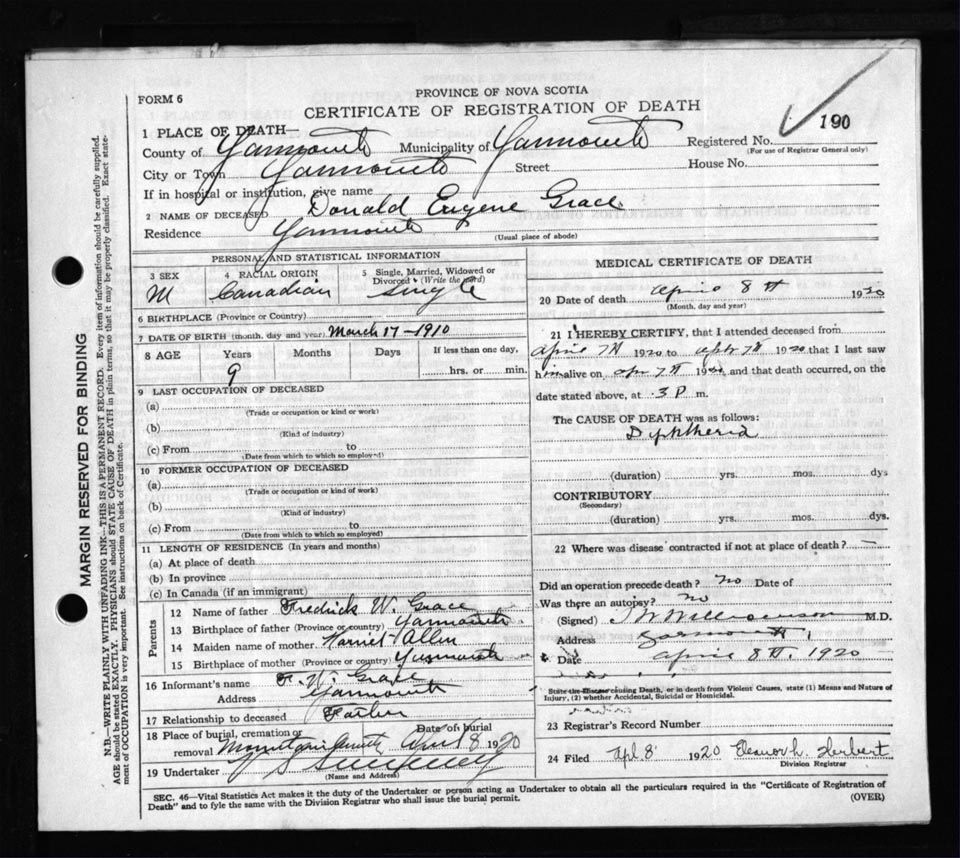 PROVINCE OF NOVA SCOTIA
FORM 6
CERTIFICATE OF REGISTRATION OF DEATH
190
1 PLACE OF DEATH—
County of Yarmouth Municipality of Yarmouth Registered No.
(For use of Registrar General only)
City or Town Yarmouth Street House No.
If in hospital or institution, give name
2 NAME OF DECEASED Donald Eugene Grace
Residence Yarmouth
(Usual place of abode)
PERSONAL AND STATISTICAL INFORMATION
3 SEX 4 RACIAL ORIGIN 5 Single, Married, Widowed or Divorced (Write the word)
M Canadian Single
6 BIRTHPLACE (Province or Country)
7 DATE OF BIRTH (month, day and year) March 17-1910
8 AGE Years Months Days If less than one day,
9 hrs. or min.
9 LAST OCCUPATION OF DECEASED
(a)
(Trade or occupation or kind or work)
(b)
(Kind of industry)
(c) From to
(Date from which to which so employed)
10 FORMER OCCUPATION OF DECEASED
(a)
(Trade or occupation or kind of work)
(b)
(Kind of industry)
(c) From to
(Date from which to which so employed)
11 LENGTH OF RESIDENCE (In years and months)
(a) At place of death
(b) In province
(c) In Canada (if an immigrant)
Parents
12 Name of father Fredrick W. Grace
13 Birthplace of father (Province or country) Yarmouth
14 Maiden name of mother Harriet Allen
15 Birthplace of mother (Province or country) Yarmouth
16 Informant's name F. W. Grace
Address Yarmouth
17 Relationship to deceased Father
18 Place of burial, cremation or Date of burial
removal Mountain Cemetery April 8 1920
19 Undertaker V S Sweeney
(Name and Address)
MEDICAL CERTIFICATE OF DEATH
20 Date of death April 8th 1920
(Month, day and year)
21 I HEREBY CERTIFY, that I attended deceased from
April 7th 1920 to Apr 7th 1920 that I last saw
him alive on Apr 7th 1920 and that death occurred, on the
date stated above, at 3 P m.
The CAUSE OF DEATH was as follows:
Diphtheria
(duration) yrs. mos. dys
CONTRIBUTORY
(Secondary)
(duration) yrs. mos. dys.
22 Where was disease contracted if not at place of death? —
Did an operation precede death? no Date of
Was there an autopsy? no
(Signed) Williamson M.D.
Address Yarmouth
Date April 8th, 1920
State the Disease causing Death, or in death from Violent Causes, state (1) Means and Nature of
Injury, (2) whether Accidental, Suicidal or Homicidal.
23 Registrar's Record Number
24 Filed Apl 8 1920 Eleanor L. Herbert
Division Registrar
SEC. 46—Vital Statistics Act makes it the duty of the Undertaker or person acting as Undertaker to obtain all the particulars required in the "Certificate of Registration of
Death" and to fyle the same with the Division Registrar who shall issue the burial permit.
(OVER)
MARGIN RESERVED FOR BINDING
N.B.—WRITE PLAINLY WITH UNFADING INK—THIS IS A PERMANENT RECORD. Every item of information should be carefully supplied.
AGE should be stated EXACTLY. PHYSICIANS should STATE CAUSE OF DEATH in plain terms, so that it may be properly classified. Exact state-
ment of OCCUPATION is very important. See instructions on back of Certificate.